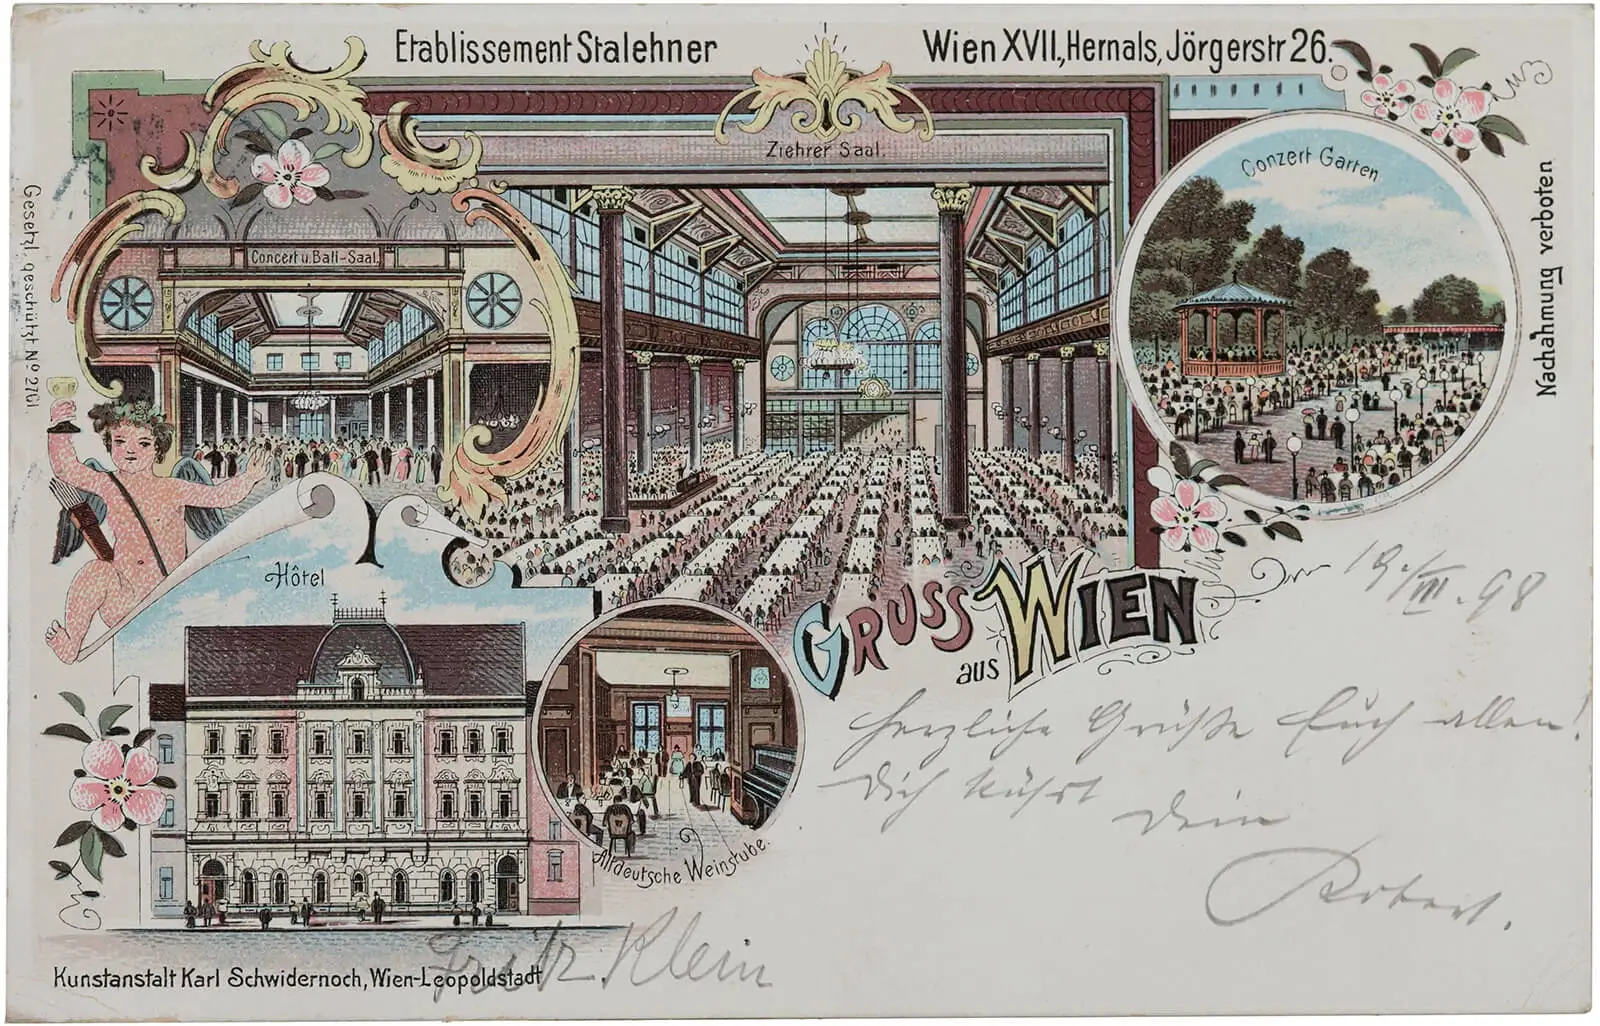 Etablissement Stalehner
Wien XVII., Hernals, Jörgerstr 26.
Ziehrer Saal.
Conzert Garten.
Concert u. Ball-Saal.
Gesetzl. geschützt No. 2761.
Nachahmung verboten
Hôtel
Gruss
aus Wien
19./III. 98
Herzliche Grüße Euch allen!
Dich küßt
Dein
Robert.
Altdeutsche Weinstube.
Fritz Klein
Kunstanstalt Karl Schwidernoch, Wien-Leopoldstadt